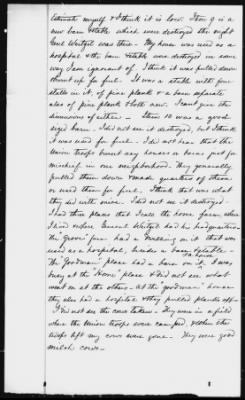 estimate myself & think it is low. Item 9 is a
new barn & stable which were destroyed the night
Genl Weitzel was there. My house was used as a
hospital & the barn & stable was destroyed in some
way I am ignorant of. I think it was pulled down
& burnt up for fuel. It was a stable with four
stalls in it, of pine plank & a barn separate
also of pine plank & both new. I cant give the
dimensions of either. Item 10 was a good
sized barn. I did not see it destroyed, but I think
it was used for fuel. I did not hear that the
Union troops burnt any houses or barns just for
mischief in our neighborhood. They generally
pulled them down & made quarters of them
or used them for fuel. I think that was what
they did with mine. I did not see it destroyed.
I had three places that I call the home farm where
I lived & where General Weitzel had his headquarters
the "grove" farm had a building on it that was
used as a hospital, besides a barn & stable &
the "Goodman" place had a barn on it & a house. I was
busy at the "Home" place & did not see what
went on at the others. At the "Goodman" house
they also had a hospital & they pulled planks off
I did not see the cows taken. They were in a field
where the Union troops were camped, & when the
troops left my cows were gone. They were good
milch cows.